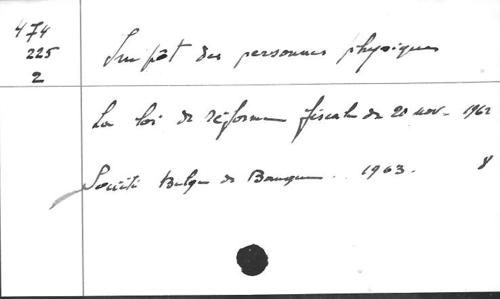 474
225
2
Impôt des personnes physiques
La loi de réforme fiscale du 20 nov. 1962
Société Belge de Banque. 1963. 8